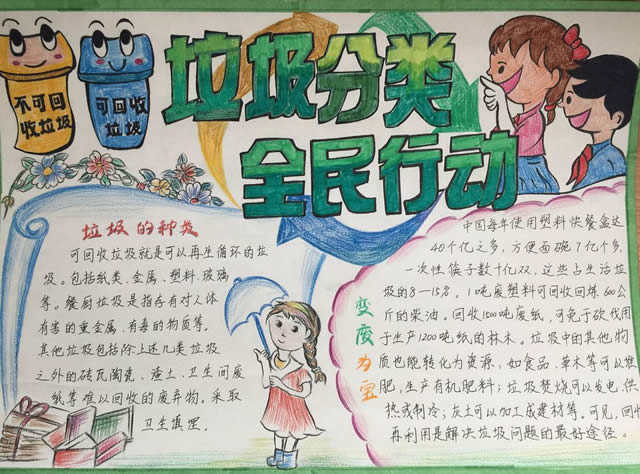 不可回
收垃圾
可回收
垃圾
垃圾分类
全民行动
垃圾的种类
可回收垃圾就是可以再生循环的垃
圾。包括纸类、金属、塑料、玻璃
等。餐厨垃圾是指含有对人体
有害的重金属、有毒的物质等。
其他垃圾包括除上述几类垃圾
之外的砖瓦陶瓷、渣土、卫生间废
纸等难以回收的废弃物。采取
卫生填埋。
变废为宝
中国每年使用塑料快餐盒达
40个亿之多,方便面碗7亿个多,
一次性筷子数十亿双,这些占生活垃
圾的8-15%。1吨废塑料可回收回炼600公
斤的柴油。回收1500吨废纸,可免于砍伐用
于生产1200吨纸的林木。垃圾中的其他物
质也能转化为资源,如食品、草木等可以堆
肥,生产有机肥料;垃圾焚烧可以发电、供
热或制冷;灰土可以加工成建材等。可见,回收
再利用是解决垃圾问题的最好途径。